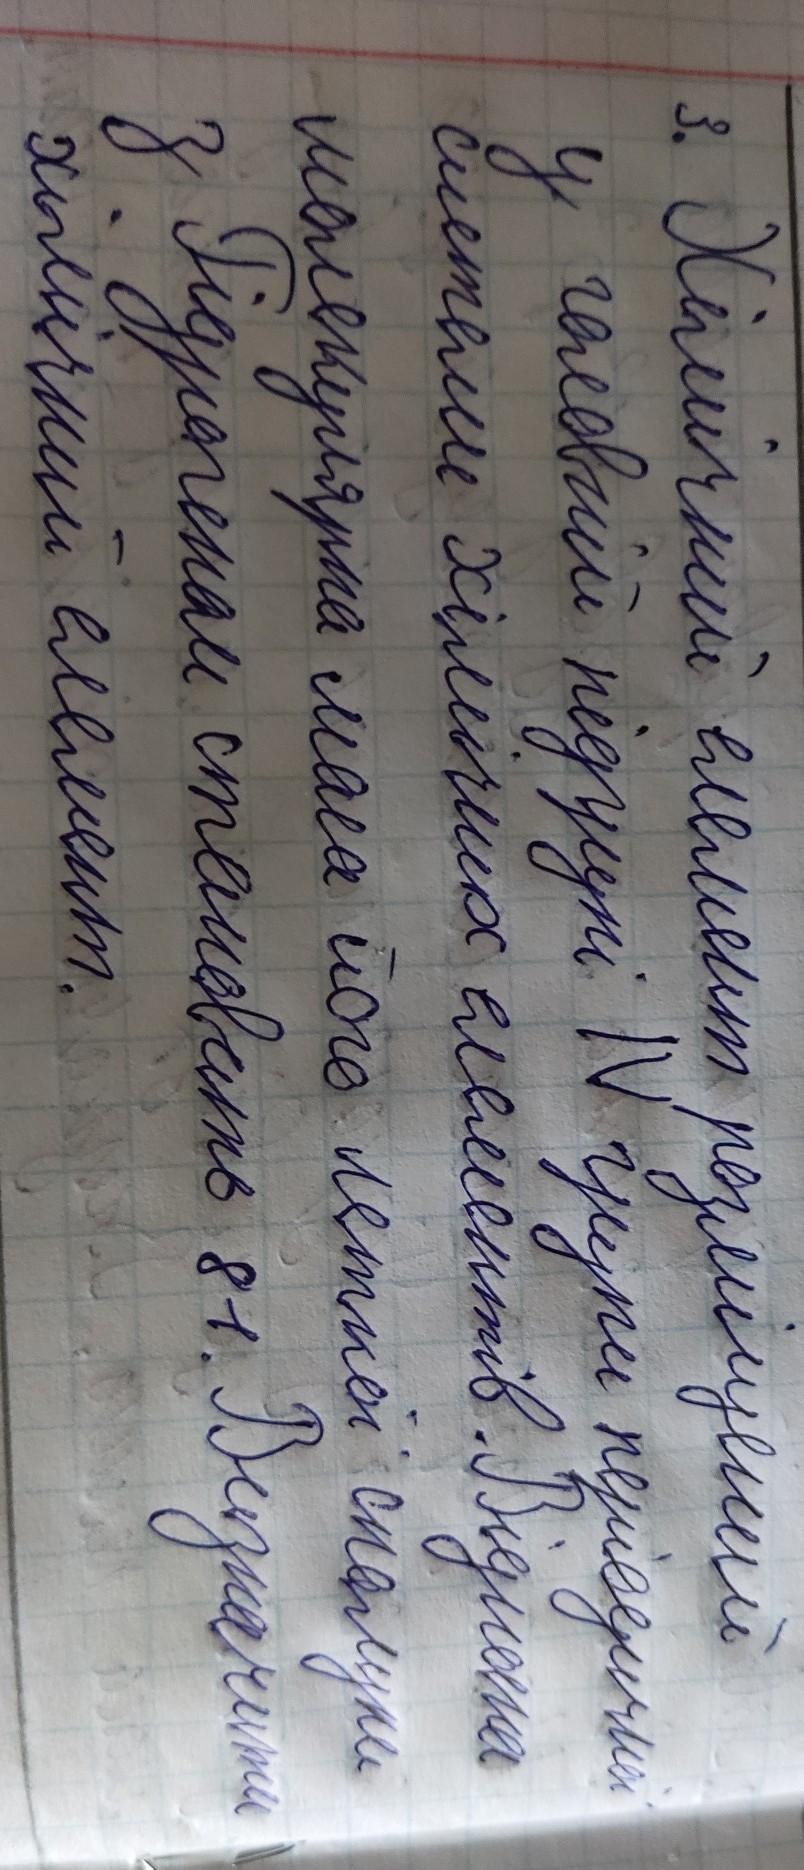 3. Хімічний елемент розміщений
у головній підгрупі IV групи періодичної
системи хімічних елементів. Відносна
молекулярна маса його леткої сполуки
з Гідрогеном становить 81. Визначити
хімічний елемент.